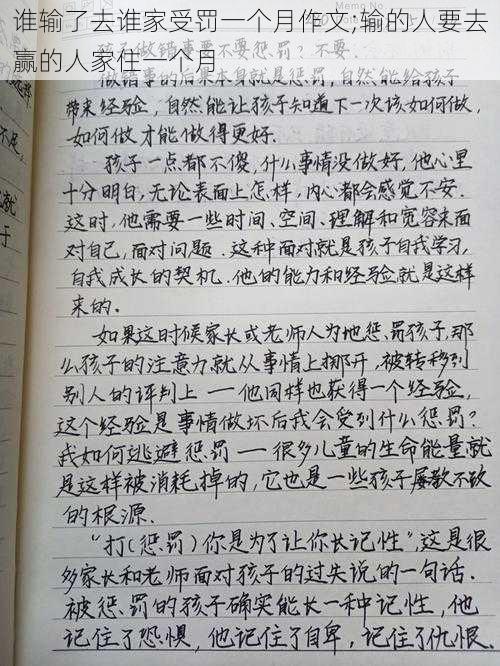 谁输了去谁家受罚一个月作文;输的人要去
赢的人家住一个月
孩子做错事要不要惩罚？不要.
做错事的后果本身就是惩罚,自然能给孩子
带来经验,自然能让孩子知道下一次该如何做,
如何做才能做得更好.
孩子一点都不傻,什么事情没做好,他心里
十分明白,无论表面上怎样,内心都会感觉不安.
这时,他需要一些时间、空间、理解和宽容来面
对自己,面对问题.这种面对就是孩子自我学习,
自我成长的契机.他的能力和经验就是这样
来的.
如果这时候家长或老师人为地惩罚孩子,那
么孩子的注意力就从事情上挪开,被转移到
别人的评判上——他同样也获得一个经验,
这个经验是事情做坏后我会受到什么惩罚?
我如何逃避惩罚——很多儿童的生命能量就
是这样被消耗掉的,它也是一些孩子屡教不改
的根源.
"打(惩罚)你是为了让你长记性",这是很
多家长和老师面对孩子的过失说的一句话.
被惩罚的孩子确实能长一种记性,他
记住了恐惧,他记住了自卑,记住了仇恨.
足,
就
于